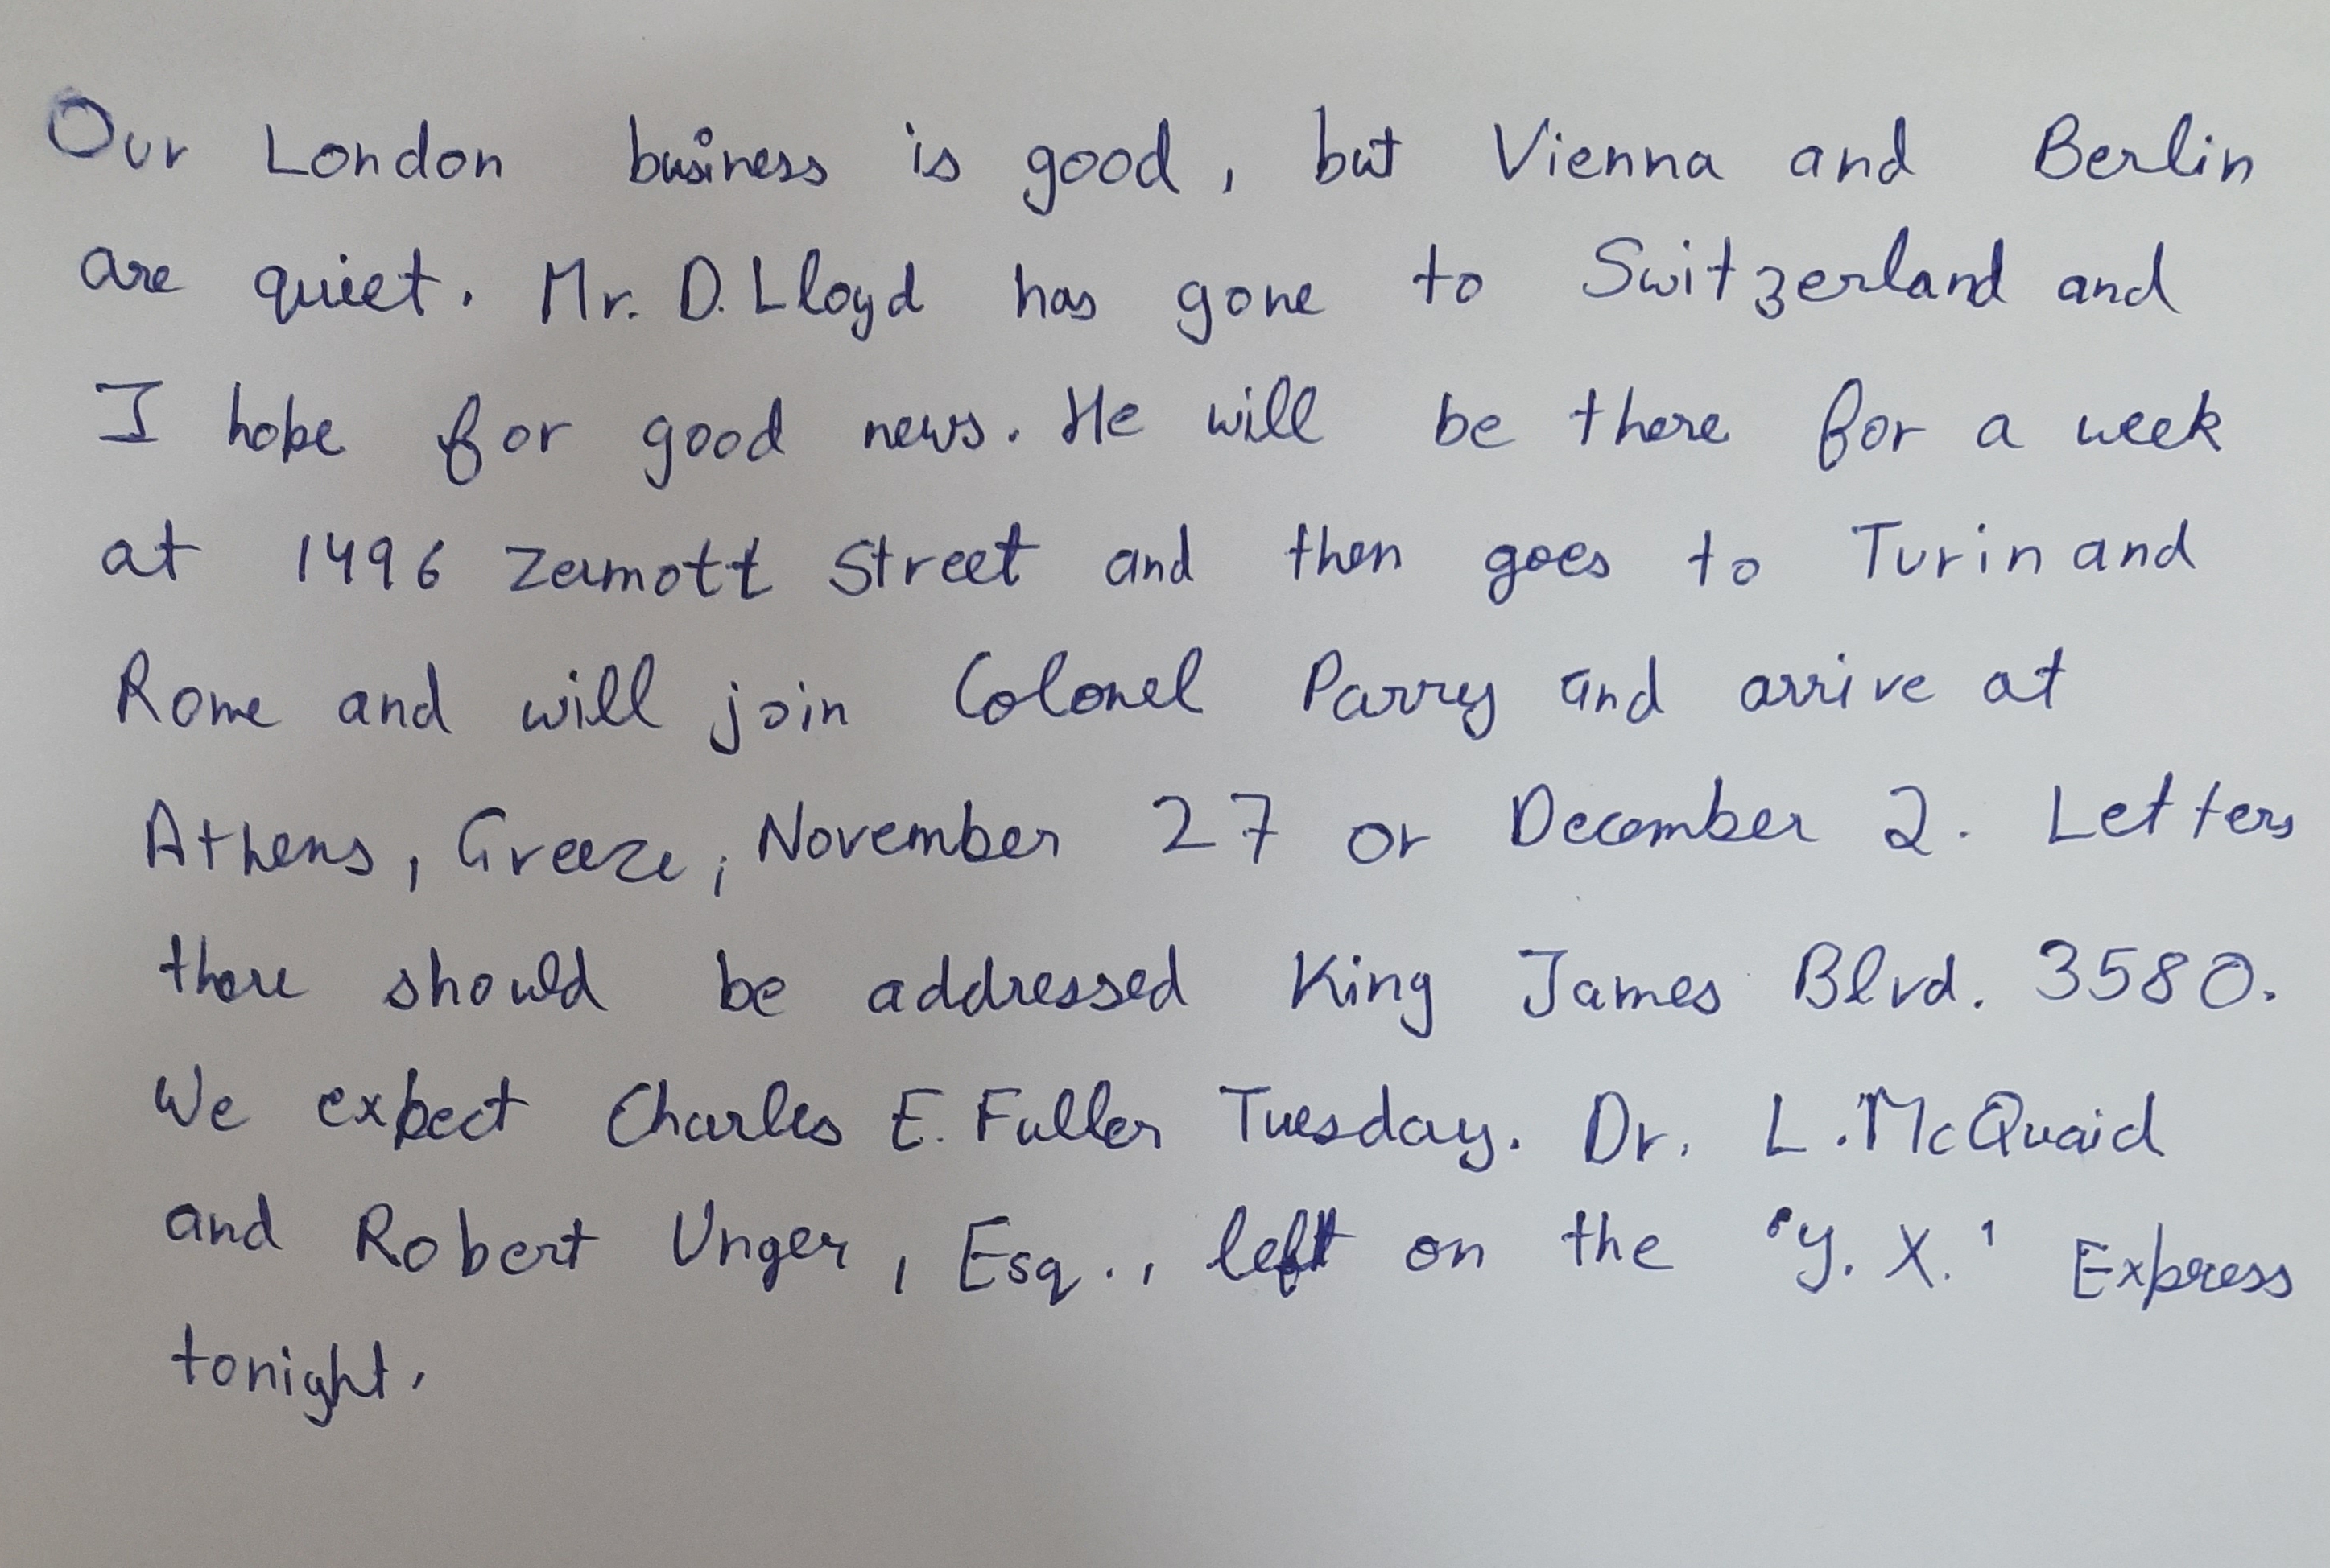 Our London business is good, but Vienna and Berlin
are quiet. Mr. D. Lloyd has gone to Switzerland and
I hope for good news. He will be there for a week
at 1496 Zermott Street and then goes to Turin and
Rome and will join Colonel Parry and arrive at
Athens, Greeze, November 27 or December 2. Letters
there should be addressed King James Blvd. 3580.
We expect Charles E. Fuller Tuesday. Dr. L. McQuaid
and Robert Unger, Esq., left on the 'Y. X.' Express
tonight.